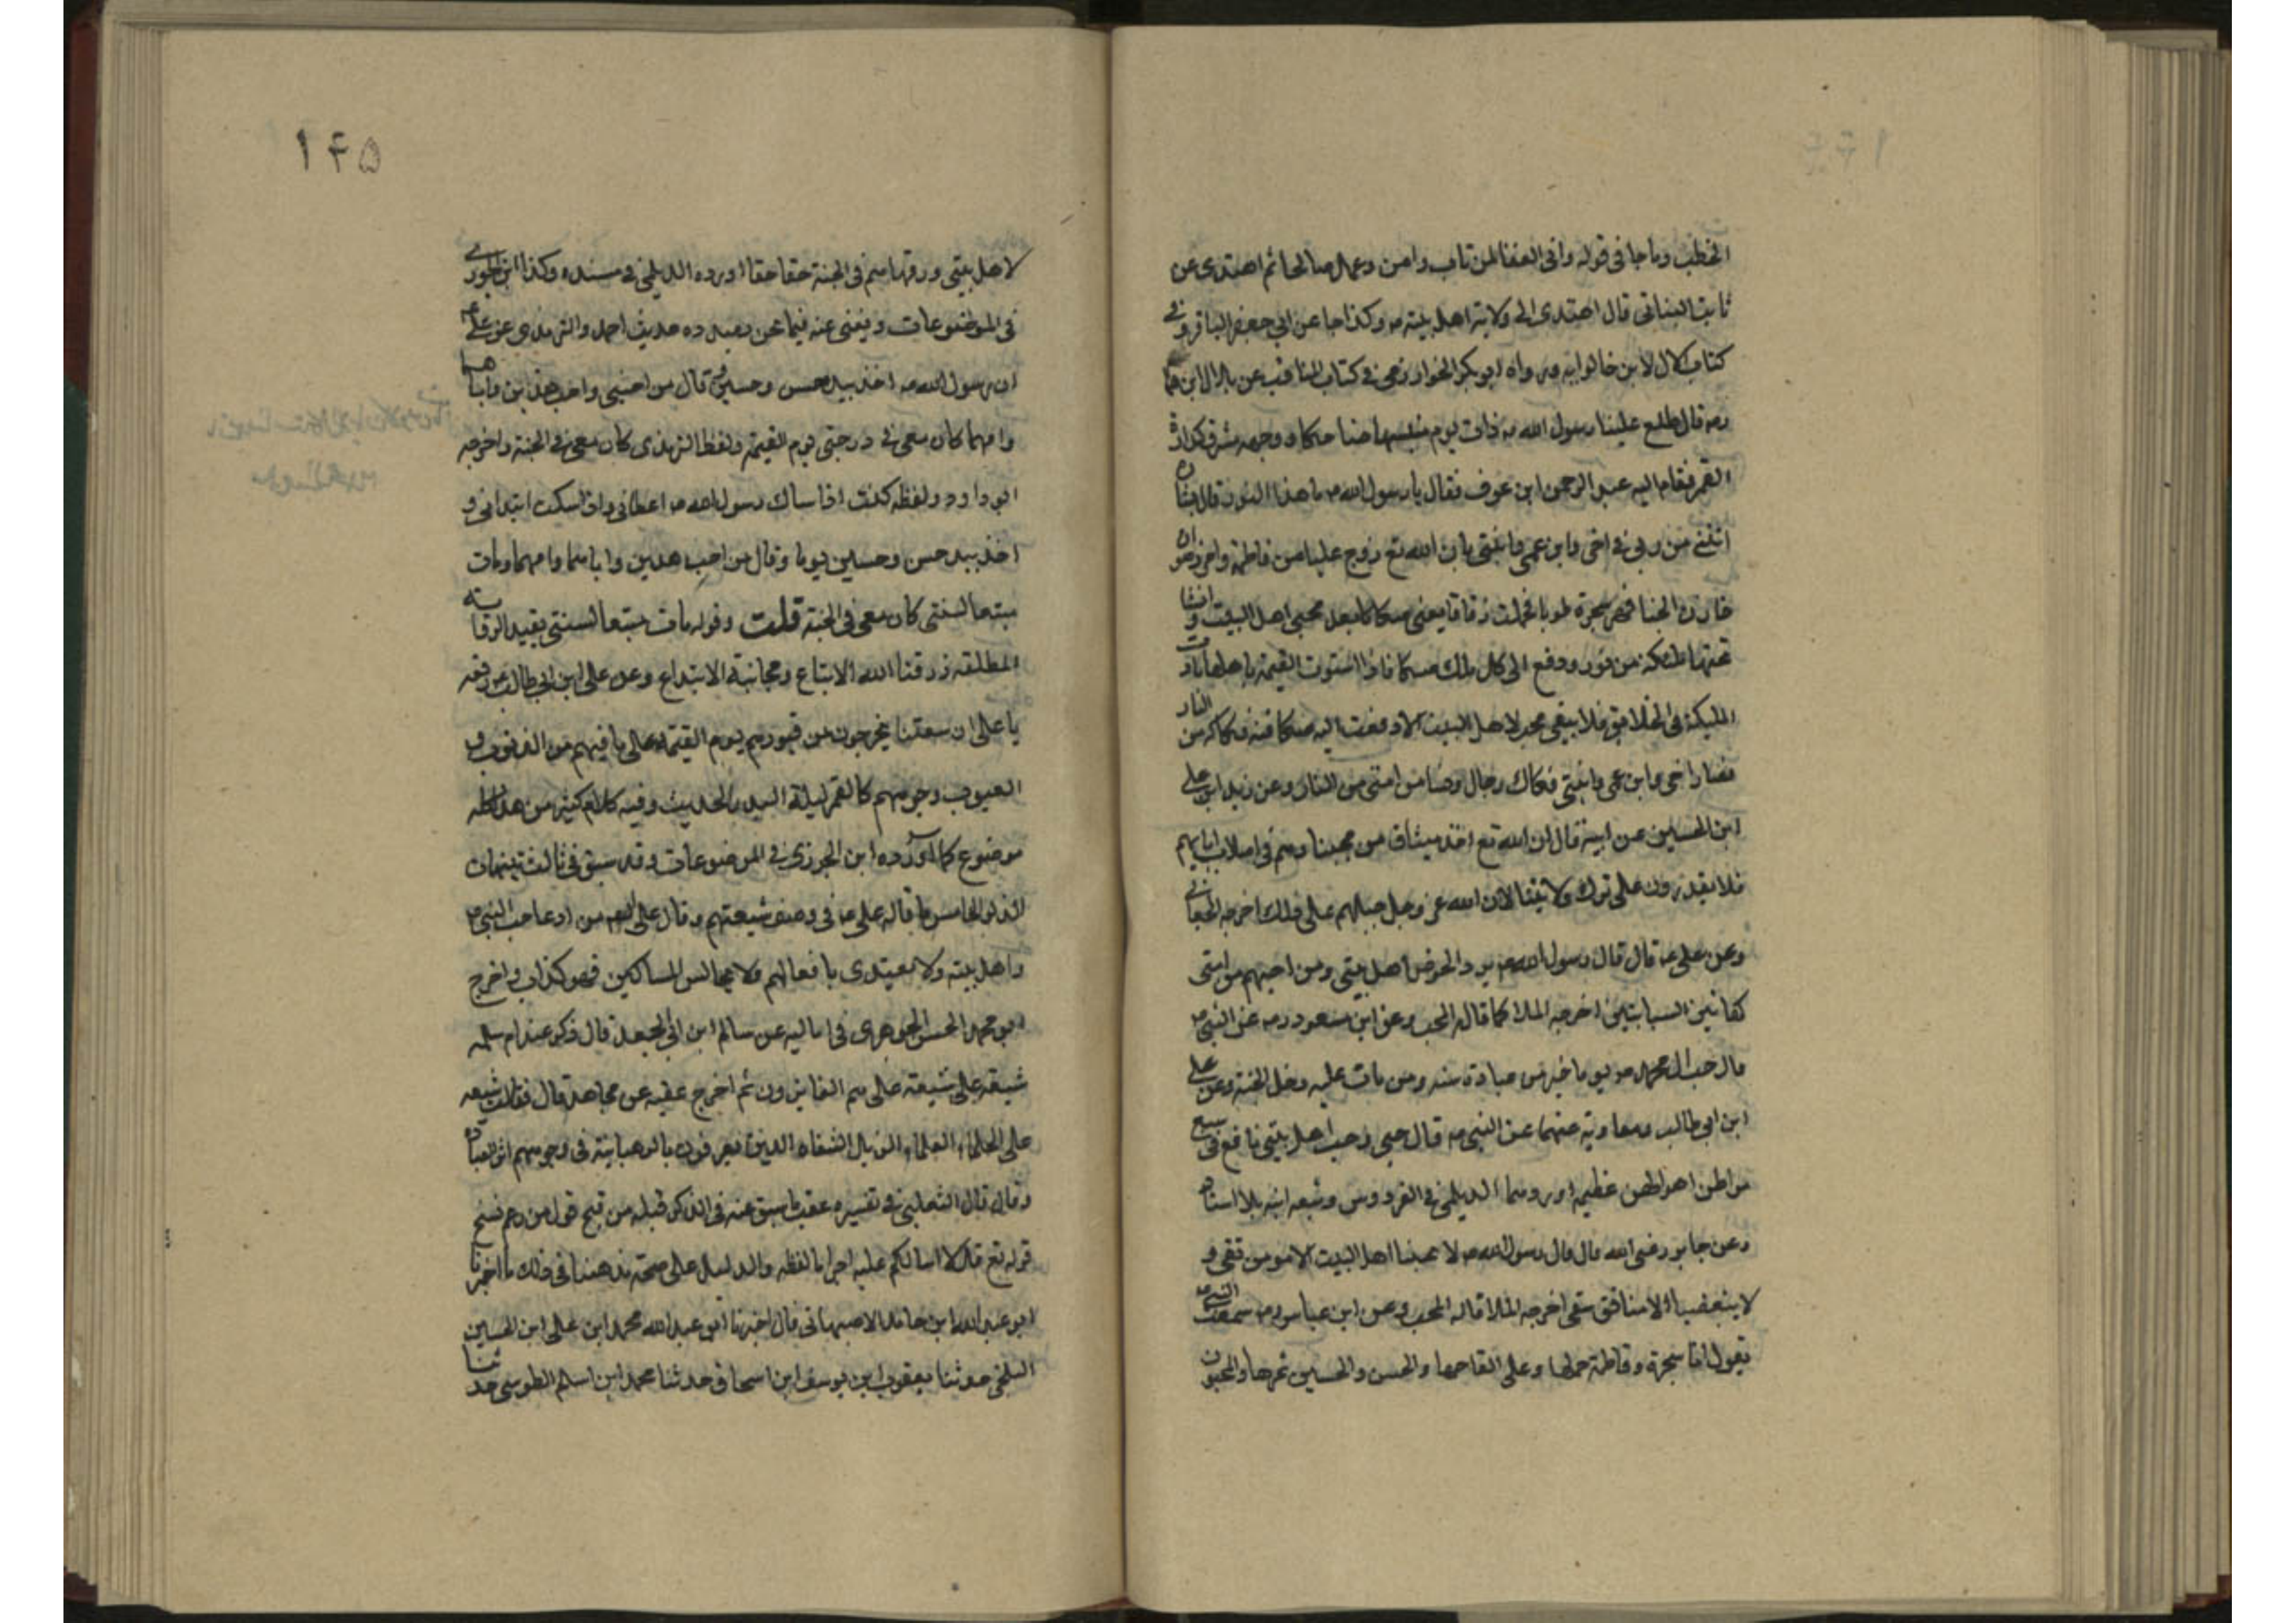 الخطب وما جا في قوله واني الغفا لمن تاب وامن وعمل صالحا ثم اهتدى عن
ثابت البناتي قال اهتدى الى ولاية اهل بيته ص وكذا جا عن ابي جعفر الباقر وفي
كتاب الال لابن خالوايه ورواه ابو بكر الخوارزمي في كتاب المناقب عن بلال ابن
رض قال طلع علينا رسول الله ص ذات يوم ضاحكا ووجهه مشرق كدارة
القمر فقام اليه عبد الرحمن ابن عوف فقال يا رسول الله ص ما هذا النور قال بشارة
اتتني من ربي في اخي وابن عمي وابنتي بان الله تع زوج عليا من فاطمة وامر رضوان
خازن الجنا فهز شجرة طوبا فحملت رقاقا يعني صكاكا بعدد محبي اهل البيت وانشا
تحتها ملئكه من نور ودفع الى كل ملك صكا فاذا استوت القيمة باهلها نادت
المليكة في الخلايق فلا يبقى محب لاهل البيت الا دفعت اليه صكا فيه فكاكه من النار
فصار اخي وابن عمي وابنتي فكاك رجال ونسا من امتي من النار وعن زيد ابن على
ابن الحسين عن ابيه قال ان الله تع اخذ ميثاق من يحبنا وهم في اصلاب ابايهم
فلا يقدرون على ترك ولايتنا لان الله عز وجل جبلهم على ذلك اخرجه الجعابي
وعن على ع قال قال رسول الله ص يرد الحوض اهل بيتي ومن احبهم من امتي
كهاتين السبابتين اخرجه الملا كما قاله المحب وعن ابن مسعود رض عن النبي ص
قال حب ال محمد ص يوما خير من عبادة سنه ومن مات عليه دخل الجنة وعن على
ابن ابي طالب ومعاوية عنهما عن النبي ص قال حبي وحب اهل بيتي نافع في سبع
مواطن اهوالهن عظيم اوردهما الديلمي في الفردوس وتبعه ابنه بلا اسناد
وعن جابر رضي الله قال قال رسول الله ص لا يحبنا اهل البيت الا مومن تقي و
لا يبغضنا الا منافق شقي اخرجه الملا قاله المحب وعن ابن عباس رض سمعت النبي ص
يقول انا شجرة وفاطمة حملها وعلى القاحها والحسن والحسين ثمرها والمحبون
١٤٥
لاهل بيتي ورقها هم في الجنة حقا حقا اورده الديلمي في مسنده وكذا ابن الجوزي
في الموضوعات ويغني عنه فيما نحن بصدده حديث احمد والترمذي عن على ع
ان رسول الله ص اخذ بيد حسن وحسين وقال من احبني واحب هذين واباهما
وامهما كان معي في درجتي يوم القيمة ولفظ الترمذي كان معي في الجنة واخرجه
ابو داود ولفظه كنت اذا سالت رسول الله ص اعطاني واذا سكت ابتداني و
اخذ بيد حسن وحسين يوما وقال من احب هذين واباهما وامهما ومات
متبعا لسنتي كان معي في الجنة قلت وقوله مات متبعا لسنتي بقيد الروايه
المطلقه رزقنا الله الاتباع ومجانبة الابتداع وعن على ابن ابي طالب ع رفعه
يا على ان شيعتنا يخرجون من قبورهم يوم القيمة على ما فيهم من الذنوب و
العيوب وجوههم كالقمر ليلة البدر الحديث وفيه كلام كثير من هذا كله
موضوع كما اورده ابن الجوزي في الموضوعات وقد سبق في ثالث تنبيهات
الذكر الخامس ما قاله على ع في وصف شيعتهم وقال على من ادعا حب النبي ص
واهل بيته ولا يقتدى بافعالهم ولا يجالس المساكين فهو كذاب واخرج
ابو محمد الحسن الجوهري في اماليه عن سالم ابن ابي الجعد قال ذكر عند ام سلمه
شيعة على شيعة على هم الفايزون ثم اخرج عقبه عن مجاهد قال شيعه
على الحلماء العلماء الذبل الشفاه الذين يعرفون بالرهبانية في وجوههم اثر العبادة
وقال قال الثعلبي في تفسيره عقب ما سبق عنه في الذكر قبله من قبح قول من زعم نسخ
قوله تع قل لا اسالكم عليه اجرا ما لفظه والدليل على صحة مذهبنا في ذلك ما اخبرنا
ابو عبد الله ابن حامد الاصبهاني قال اخبرنا ابو عبد الله محمد ابن على ابن الحسين
البلخي حدثنا يعقوب ابن يوسف ابن اسحاق حدثنا محمد ابن اسلم الطوسي حدثنا